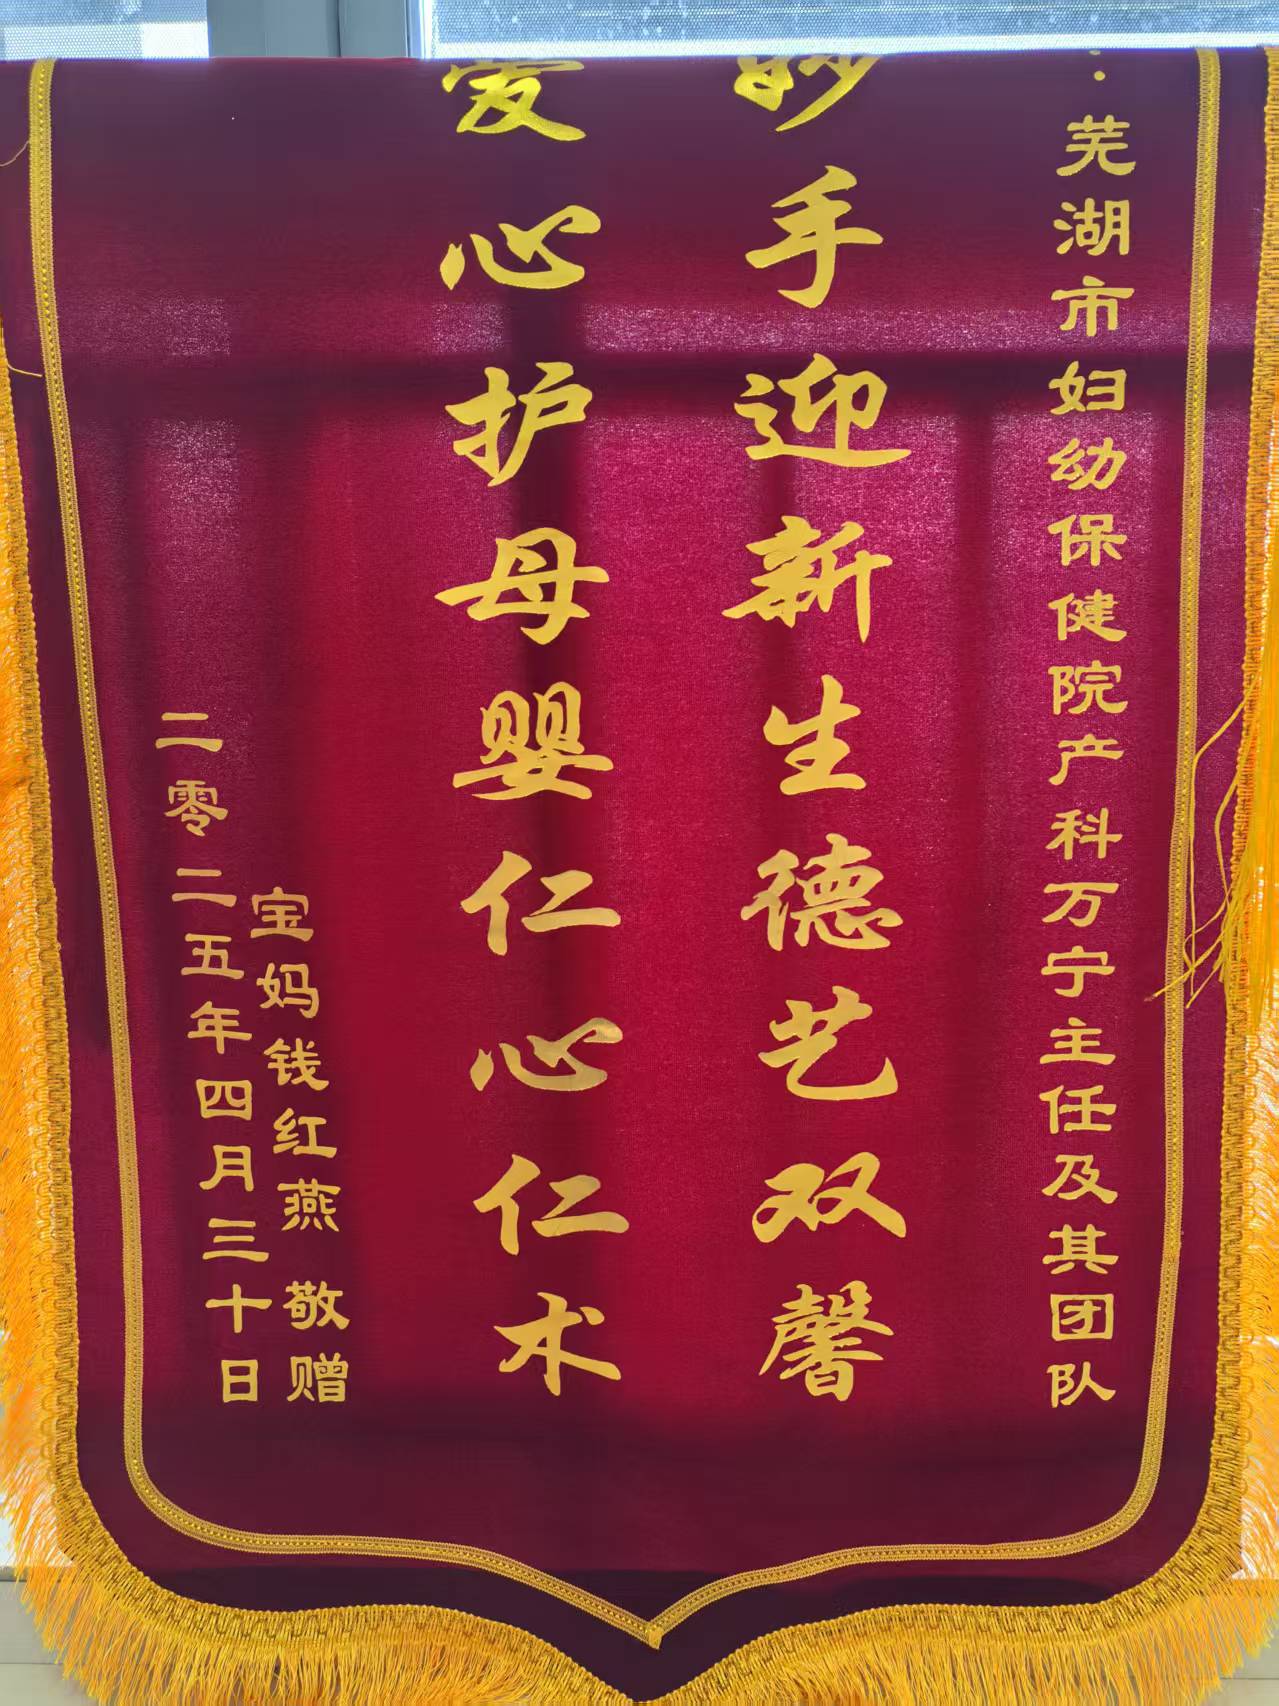 ：芜湖市妇幼保健院产科万宁主任及其团队
妙手迎新生德艺双馨
爱心护母婴仁心仁术
宝妈钱红燕 敬赠
二零二五年四月三十日